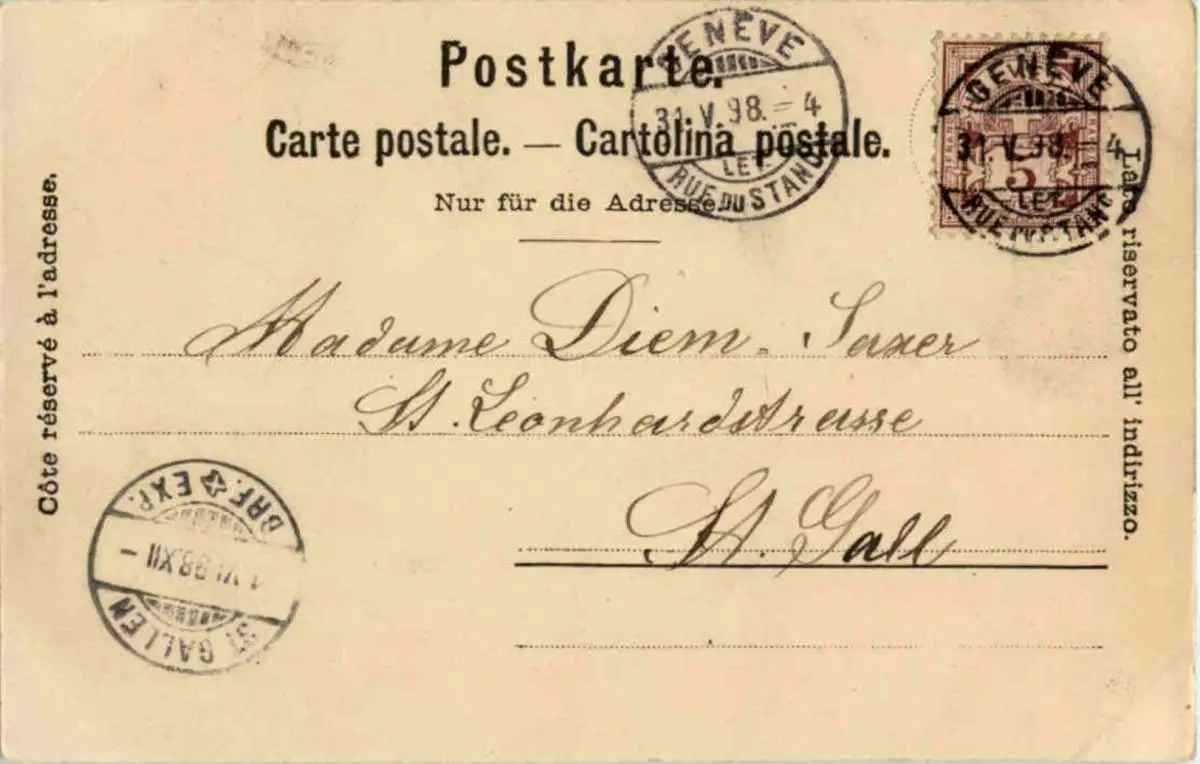 Postkarte.
Carte postale. — Cartolina postale.
Nur für die Adresse.
Côte réservé à l'adresse.
Lato riservato all' indirizzo.
GENÈVE
31.V.98.-4
LET.
RUE DU STAND
GENÈVE
31.V.98.-4
LET.
RUE DU STAND
5
Madame Diem-Saxer
St. Leonhardstrasse
St. Gall
BRF. EXP.
1.VI.98.XII-
ST. GALLEN